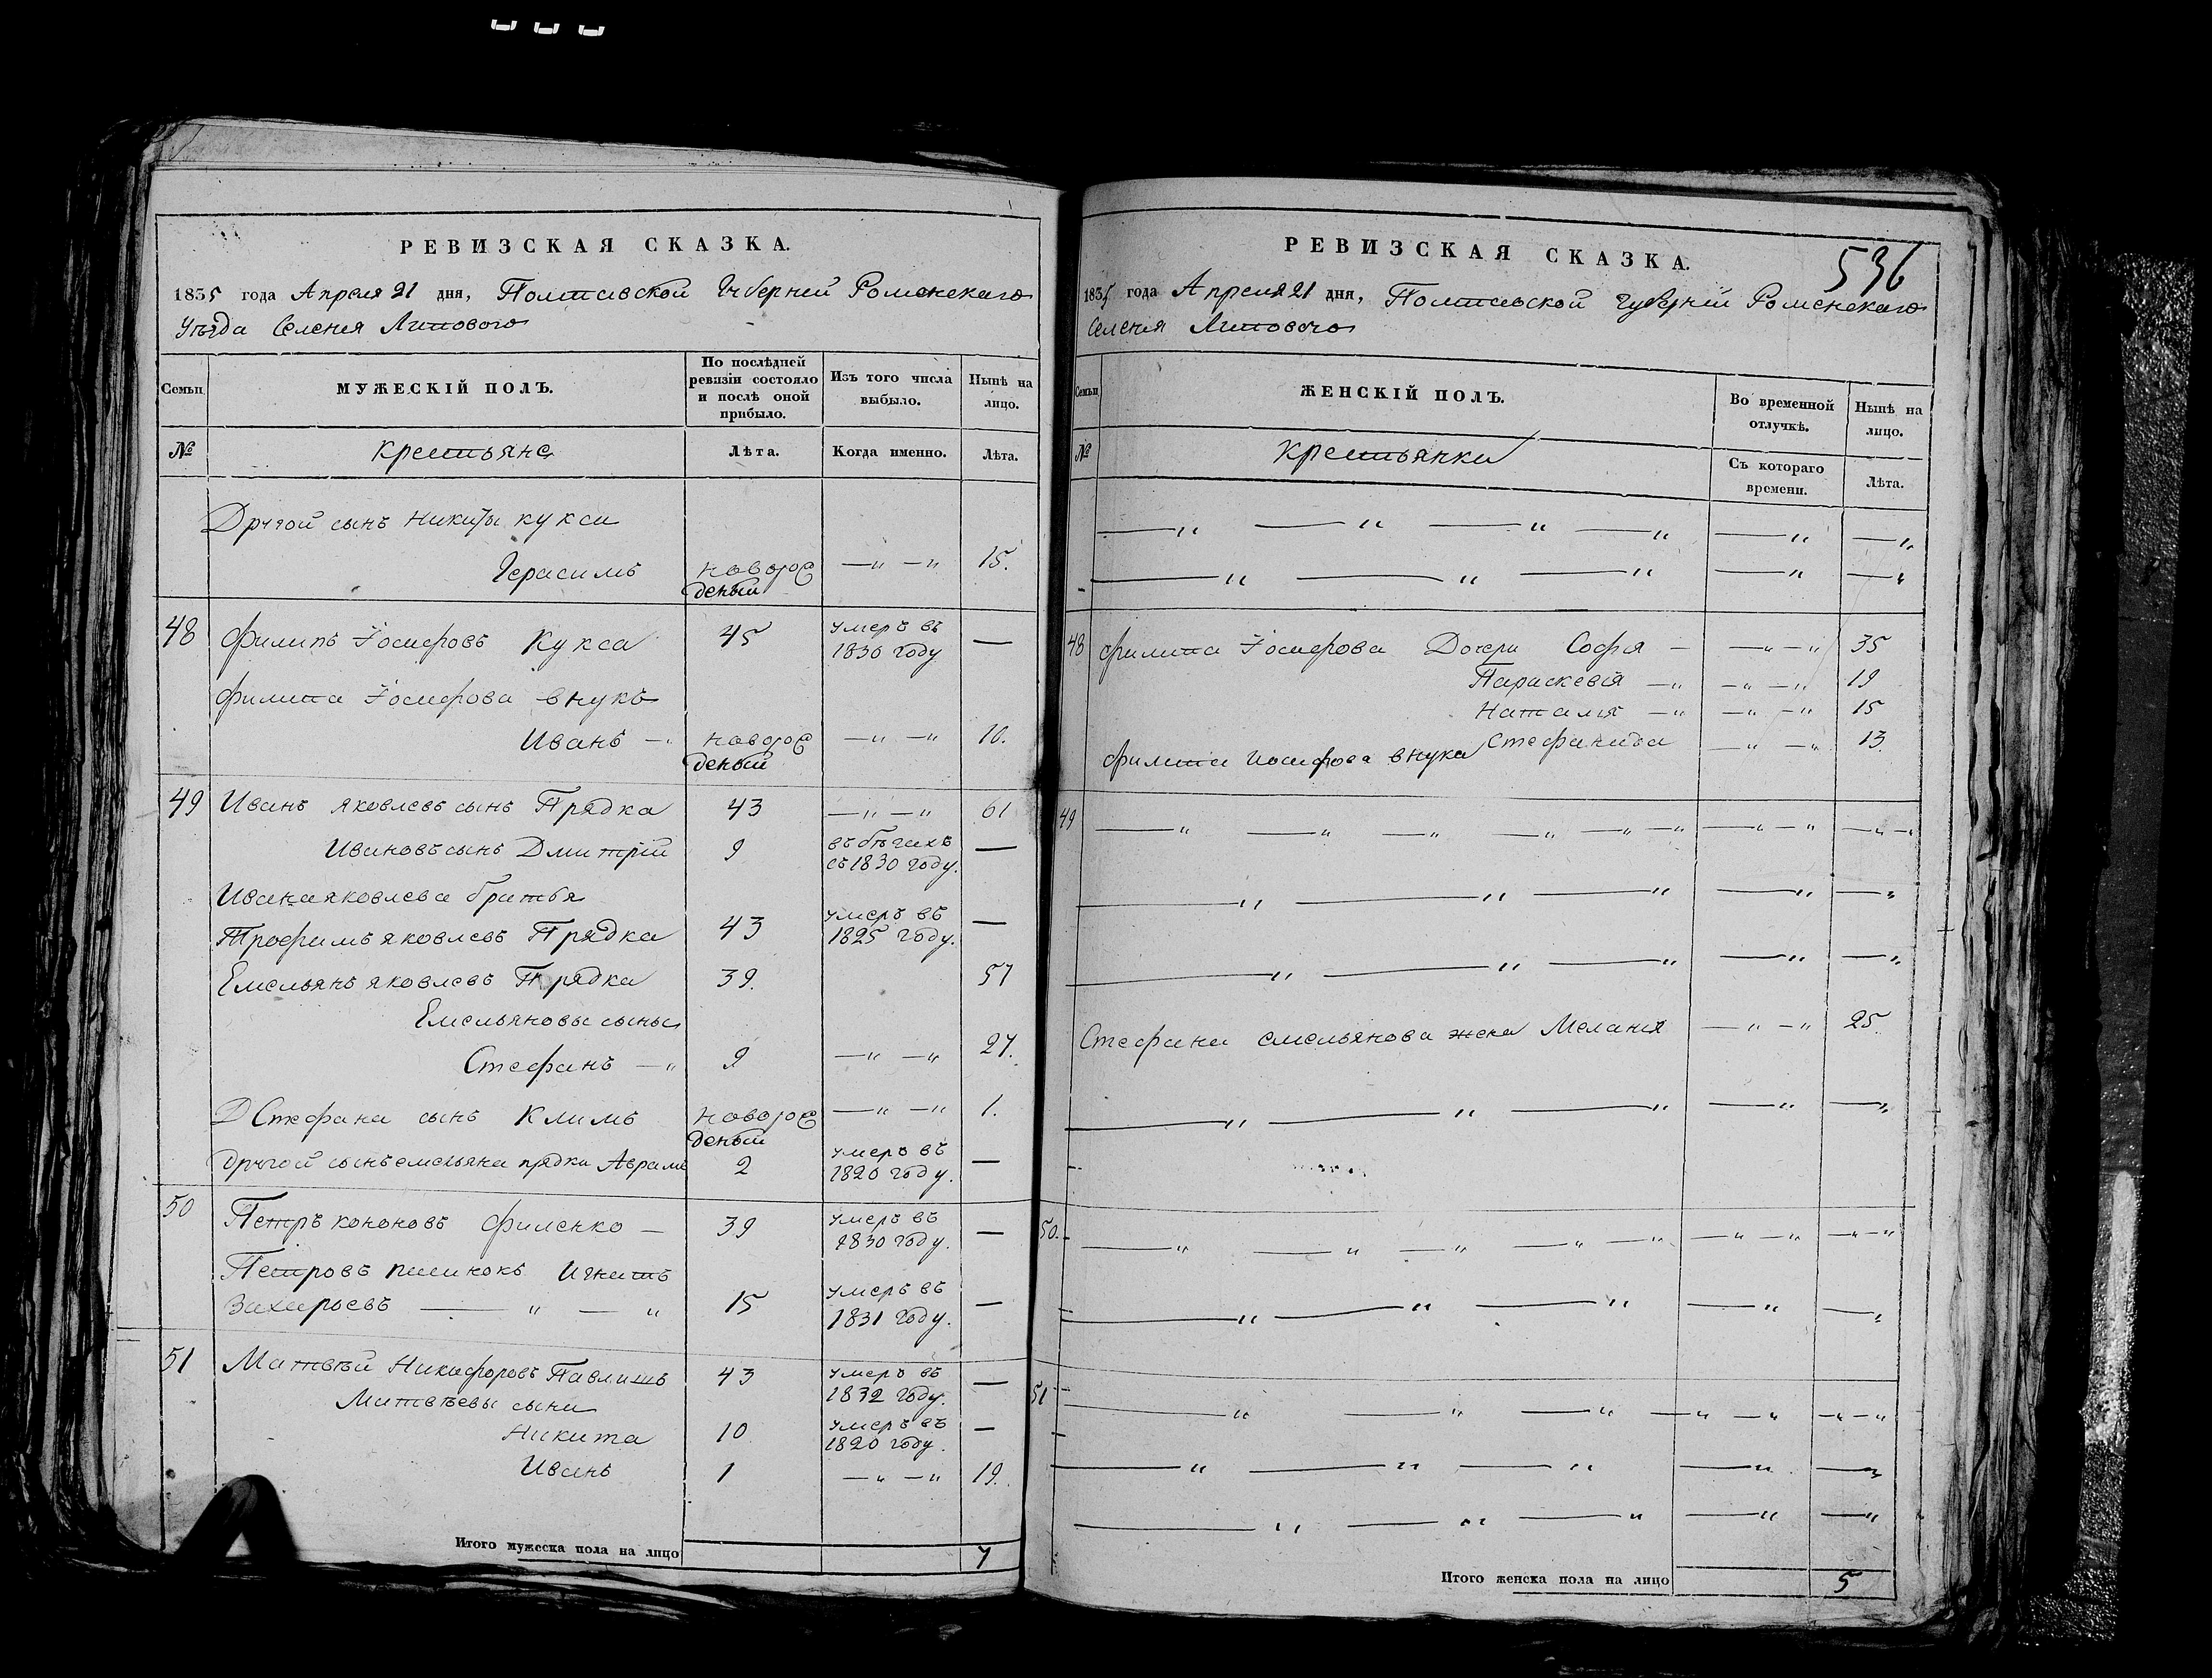 РЕВИЗСКАЯ СКАЗКА.
1835 года Апреля 21 дня, Полтавской Губерней Роменскаго
Уѣзда Селенія Липового
Семьи
МУЖЕСКІЙ ПОЛЪ.
По послѣдней ревизіи состояло и послѣ оной прибыло.
Изъ того числа выбыло.
Нынѣ на лицо.
№ Крестьяне Лѣта. Когда именно. Лѣта.
Другой сынъ Никиты Кукси
Герасимъ новорож деный —„ —„ 15.
48 Филипъ Іосифовъ Кукса 45 умеръ въ 1830 году —
Филипа Іосифова внукъ
Иванъ —„ новорож деный —„ —„ 10.
49 Иванъ Яковлевъ сынъ Прядка 43 —„ —„ 61
Ивановъ сынъ Дмитрій 9 въ бѣгахъ съ 1830 году. —
Ивана яковлева братья
Трофимъ яковлевъ Прядка 43 умеръ въ 1825 году. —
Емельянъ яковлевъ Прядка 39. 57
Емельяновы сыны
Стефанъ —„ 9 —„ —„ 27.
Стефана сынъ Климъ новорож деный —„ —„ 1.
Другой сынъ емельяна прядки Аврамъ 2 умеръ въ 1820 году. —
50 Петръ кононовъ Филенко — 39 умеръ въ 1830 году. —
Петровъ Игнатъ
Захарьевъ —„ —„ 15 умеръ въ 1831 году. —
51 Матвѣй Никифоровъ Павлишъ 43 умеръ въ 1832 году. —
Матвѣевы сыни
Никита 10 умеръ въ 1820 году. —
Иванъ 1 —„ —„ 19.
Итого мужеска пола на лицо 7
536
РЕВИЗСКАЯ СКАЗКА.
1835 года Апреля 21 дня, Полтавской Губерній Роменскаго
Селенія Липового
Семьи
ЖЕНСКІЙ ПОЛЪ.
Во временной отлучкѣ.
Нынѣ на лицо.
№ Крестьянки Съ котораго времени. Лѣта.
48 Филипа Іосифова Дочери Софія — —„ —„ 35
Параскевія —„ —„ —„ 19
Наталія —„ —„ —„ 15
Филипа Иосифова внука Стефанида —„ —„ 13.
49
Стефана емельянова жена Меланія —„ —„ 25.
50.
51
Итого женска пола на лицо 5